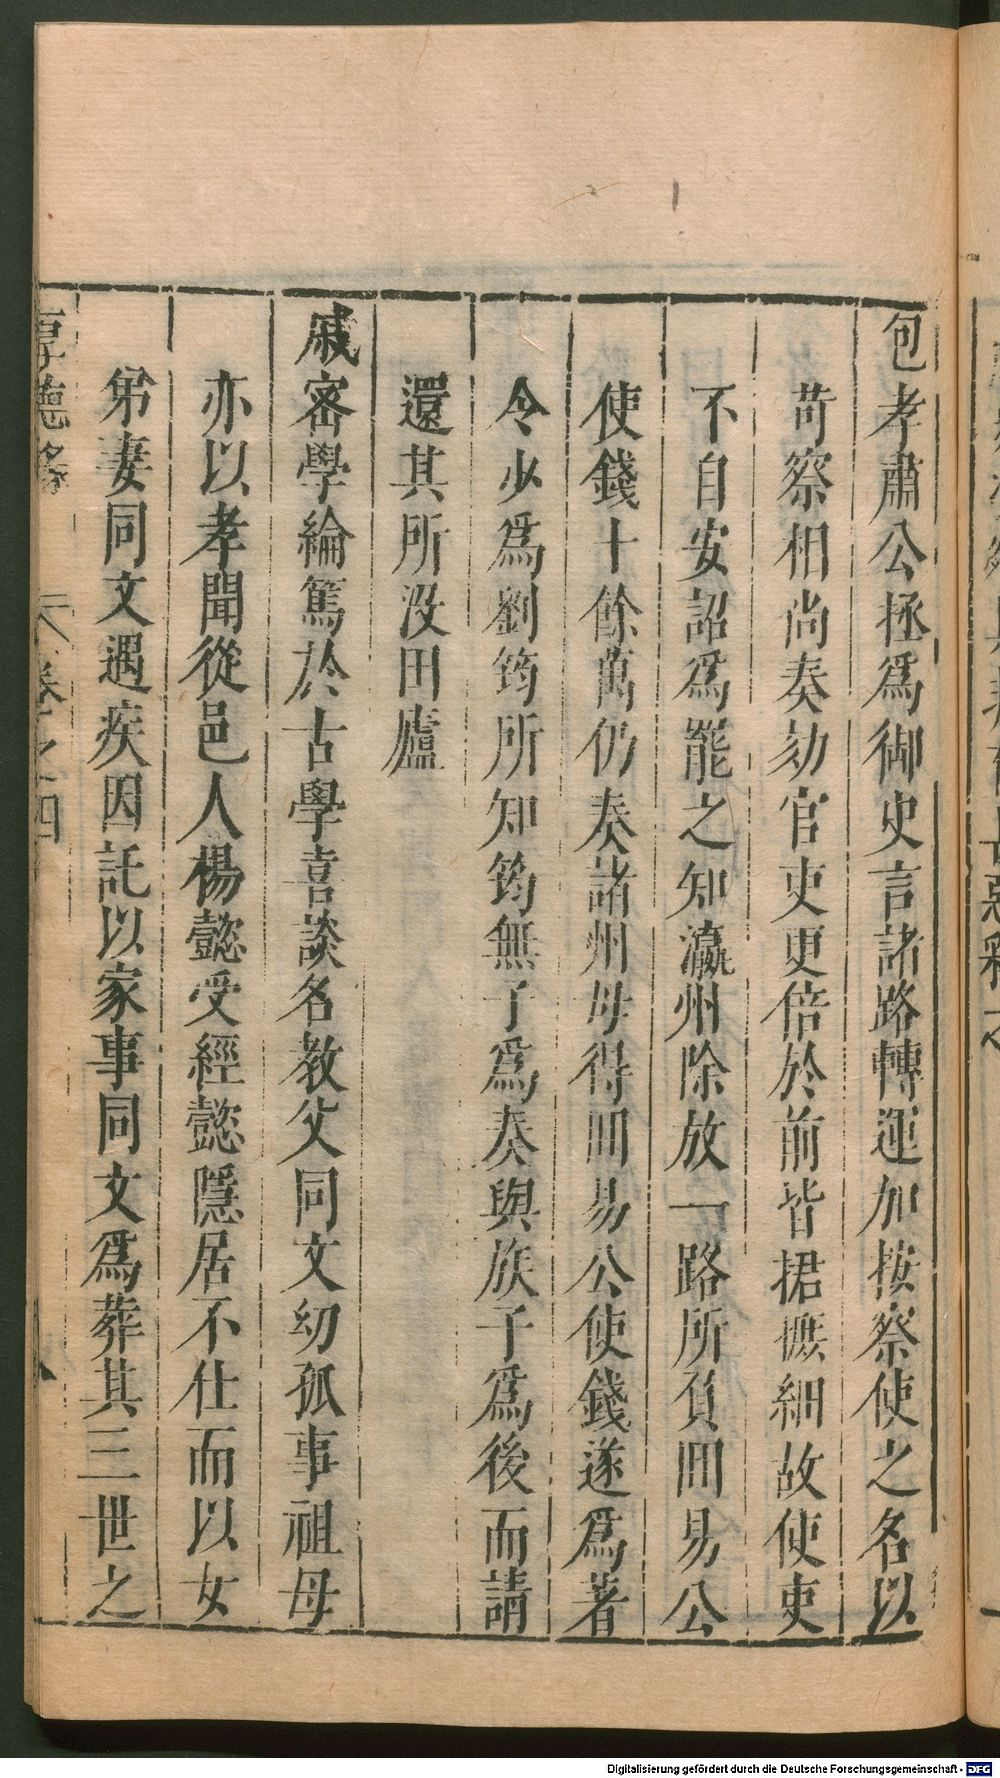 包孝肅公拯爲御史言諸路轉運加按察使之名以
苛察相尚奏劾官吏更倍於前皆捃摭細故使吏
不自安詔爲罷之知瀛州除放一路所負回易公
使錢十餘萬仍奏諸州毋得回易公使錢遂爲著
令少爲劉筠所知筠無子爲奏與族子爲後而請
還其所没田廬
戚密學綸篤於古學喜談名教父同文幼孤事祖母
亦以孝聞從邑人楊懿受經懿隱居不仕而以女
弟妻同文遇疾因託以家事同文爲葬其三世之
厚德錄 卷之四
八
Digitalisierung gefördert durch die Deutsche Forschungsgemeinschaft - DFG